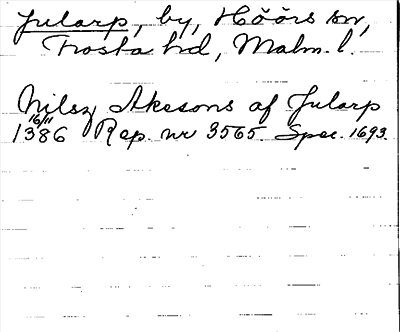 Jularp, by, Höörs sn,
Frosta hd, Malm. l.
Nilsz Akesons af Jularp
16/11
1386 Rep. nr 3565. Spec. 1693.